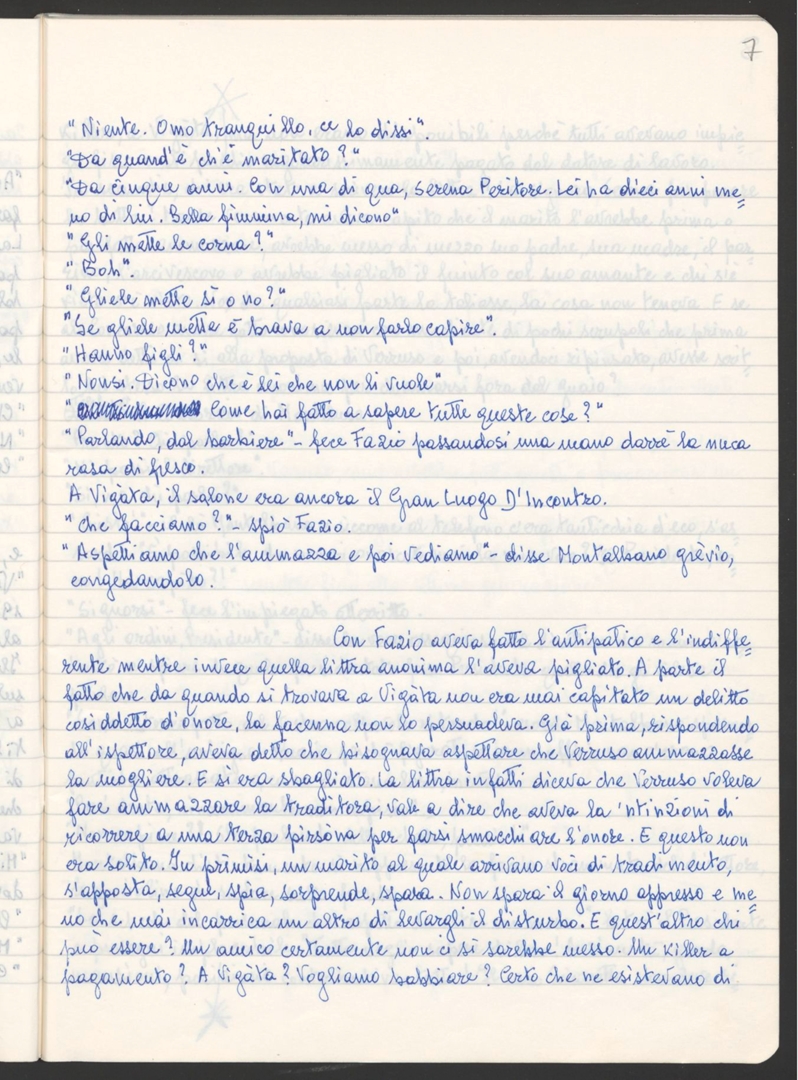 7
"Niente. Omo tranquillo, ce lo dissi".
"Da quand'è ch'è maritato?"
"Da cinque anni. Con una di qua, Serena Peritore. Lei ha dieci anni me=
no di lui. Bella fimmina, mi dicono"
"Gli mette le corna?"
"Boh".
"Gliele mette sì o no?"
"Se gliele mette è brava a non farlo capire".
"Hanno figli?"
"Nonsi. Dicono che è lei che non li vuole"
" Come hai fatto a sapere tutte queste cose?"
"Parlando, dal barbiere" - fece Fazio passandosi una mano darrè la nuca
rasa di fresco.
A Vigàta, il salone era ancora il Gran Luogo D'Incontro.
"Che facciamo?" - spiò Fazio.
"Aspettiamo che l'ammazza e poi vediamo" - disse Montalbano grèvio,
congedandolo.
Con Fazio aveva fatto l'antipatico e l'indiffe=
rente mentre invece quella littra anonima l'aveva pigliato. A parte il
fatto che da quando si trovava a Vigàta non era mai capitato un delitto
cosiddetto d'onore, la facenna non lo persuadeva. Già prima, rispondendo
all'ispettore, aveva detto che bisognava aspettare che Verruso ammazzasse
la mogliere. E si era sbagliato. La littra infatti diceva che Verruso voleva
fare ammazzare la traditora, vale a dire che aveva la 'ntinzioni di
ricorrere a una terza pirsòna per farsi smacchiare l'onore. E questo non
era solito. In primisi, un marito al quale arrivano voci di tradimento,
s'apposta, segue, spia, sorprende, spara. Non spara il giorno appresso e me=
no che mai incarrica un altro di levargli il disturbo. E quest'altro chi
può essere? Un amico certamente non ci si sarebbe messo. Un killer a
pagamento? A Vigàta? Vogliamo babbiare? Certo che ne esistevano di